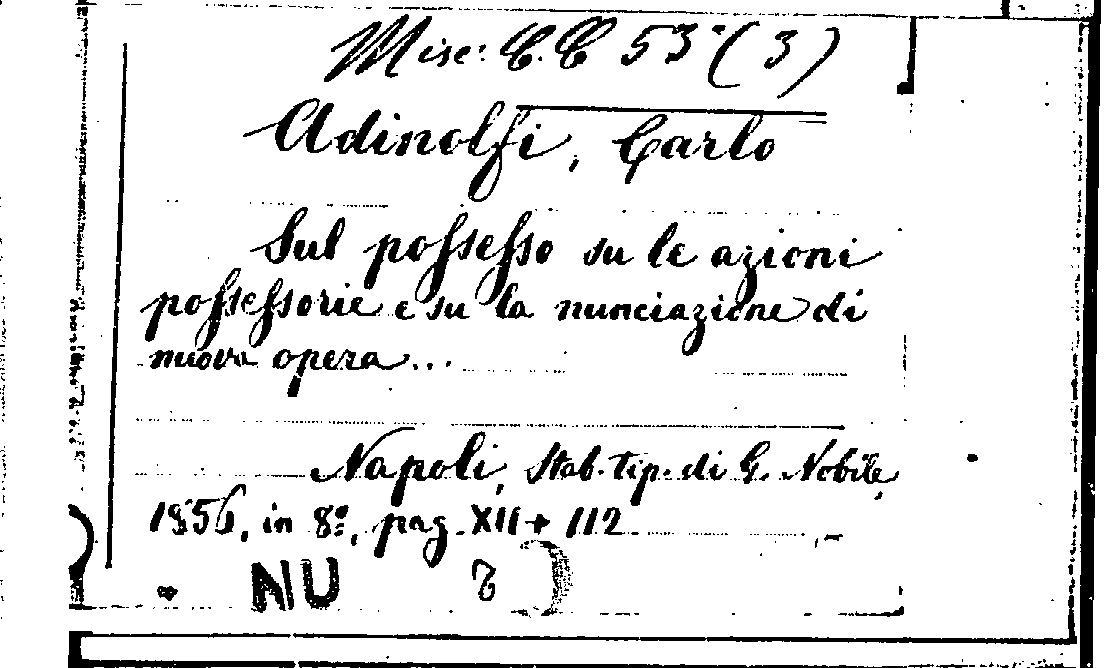 Misc. C.C 53 (3)
Adinolfi, Carlo
Sul possesso su le azioni
possessorie e su la nunciazione di
nuova opera...
Napoli, Stab. tip. di G. Nobile,
1856, in 8º, pag. XII + 112
NU